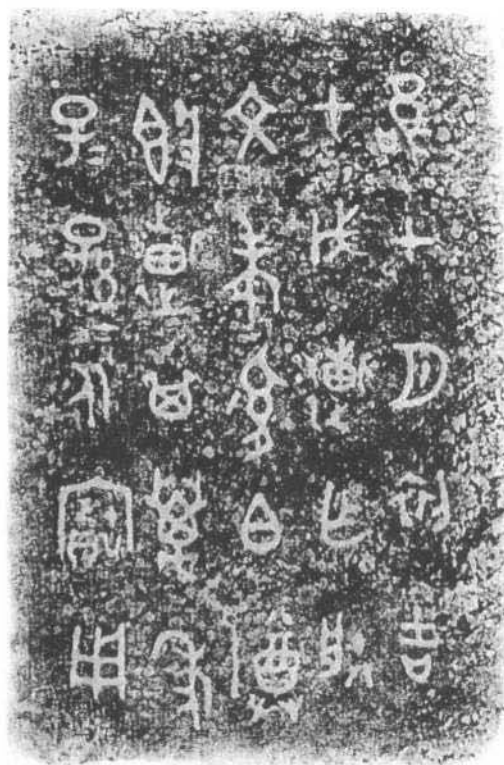 隹十月初吉
甲戌乍朕
文考白尊
簋其萬年
子＝孫＝永寶用